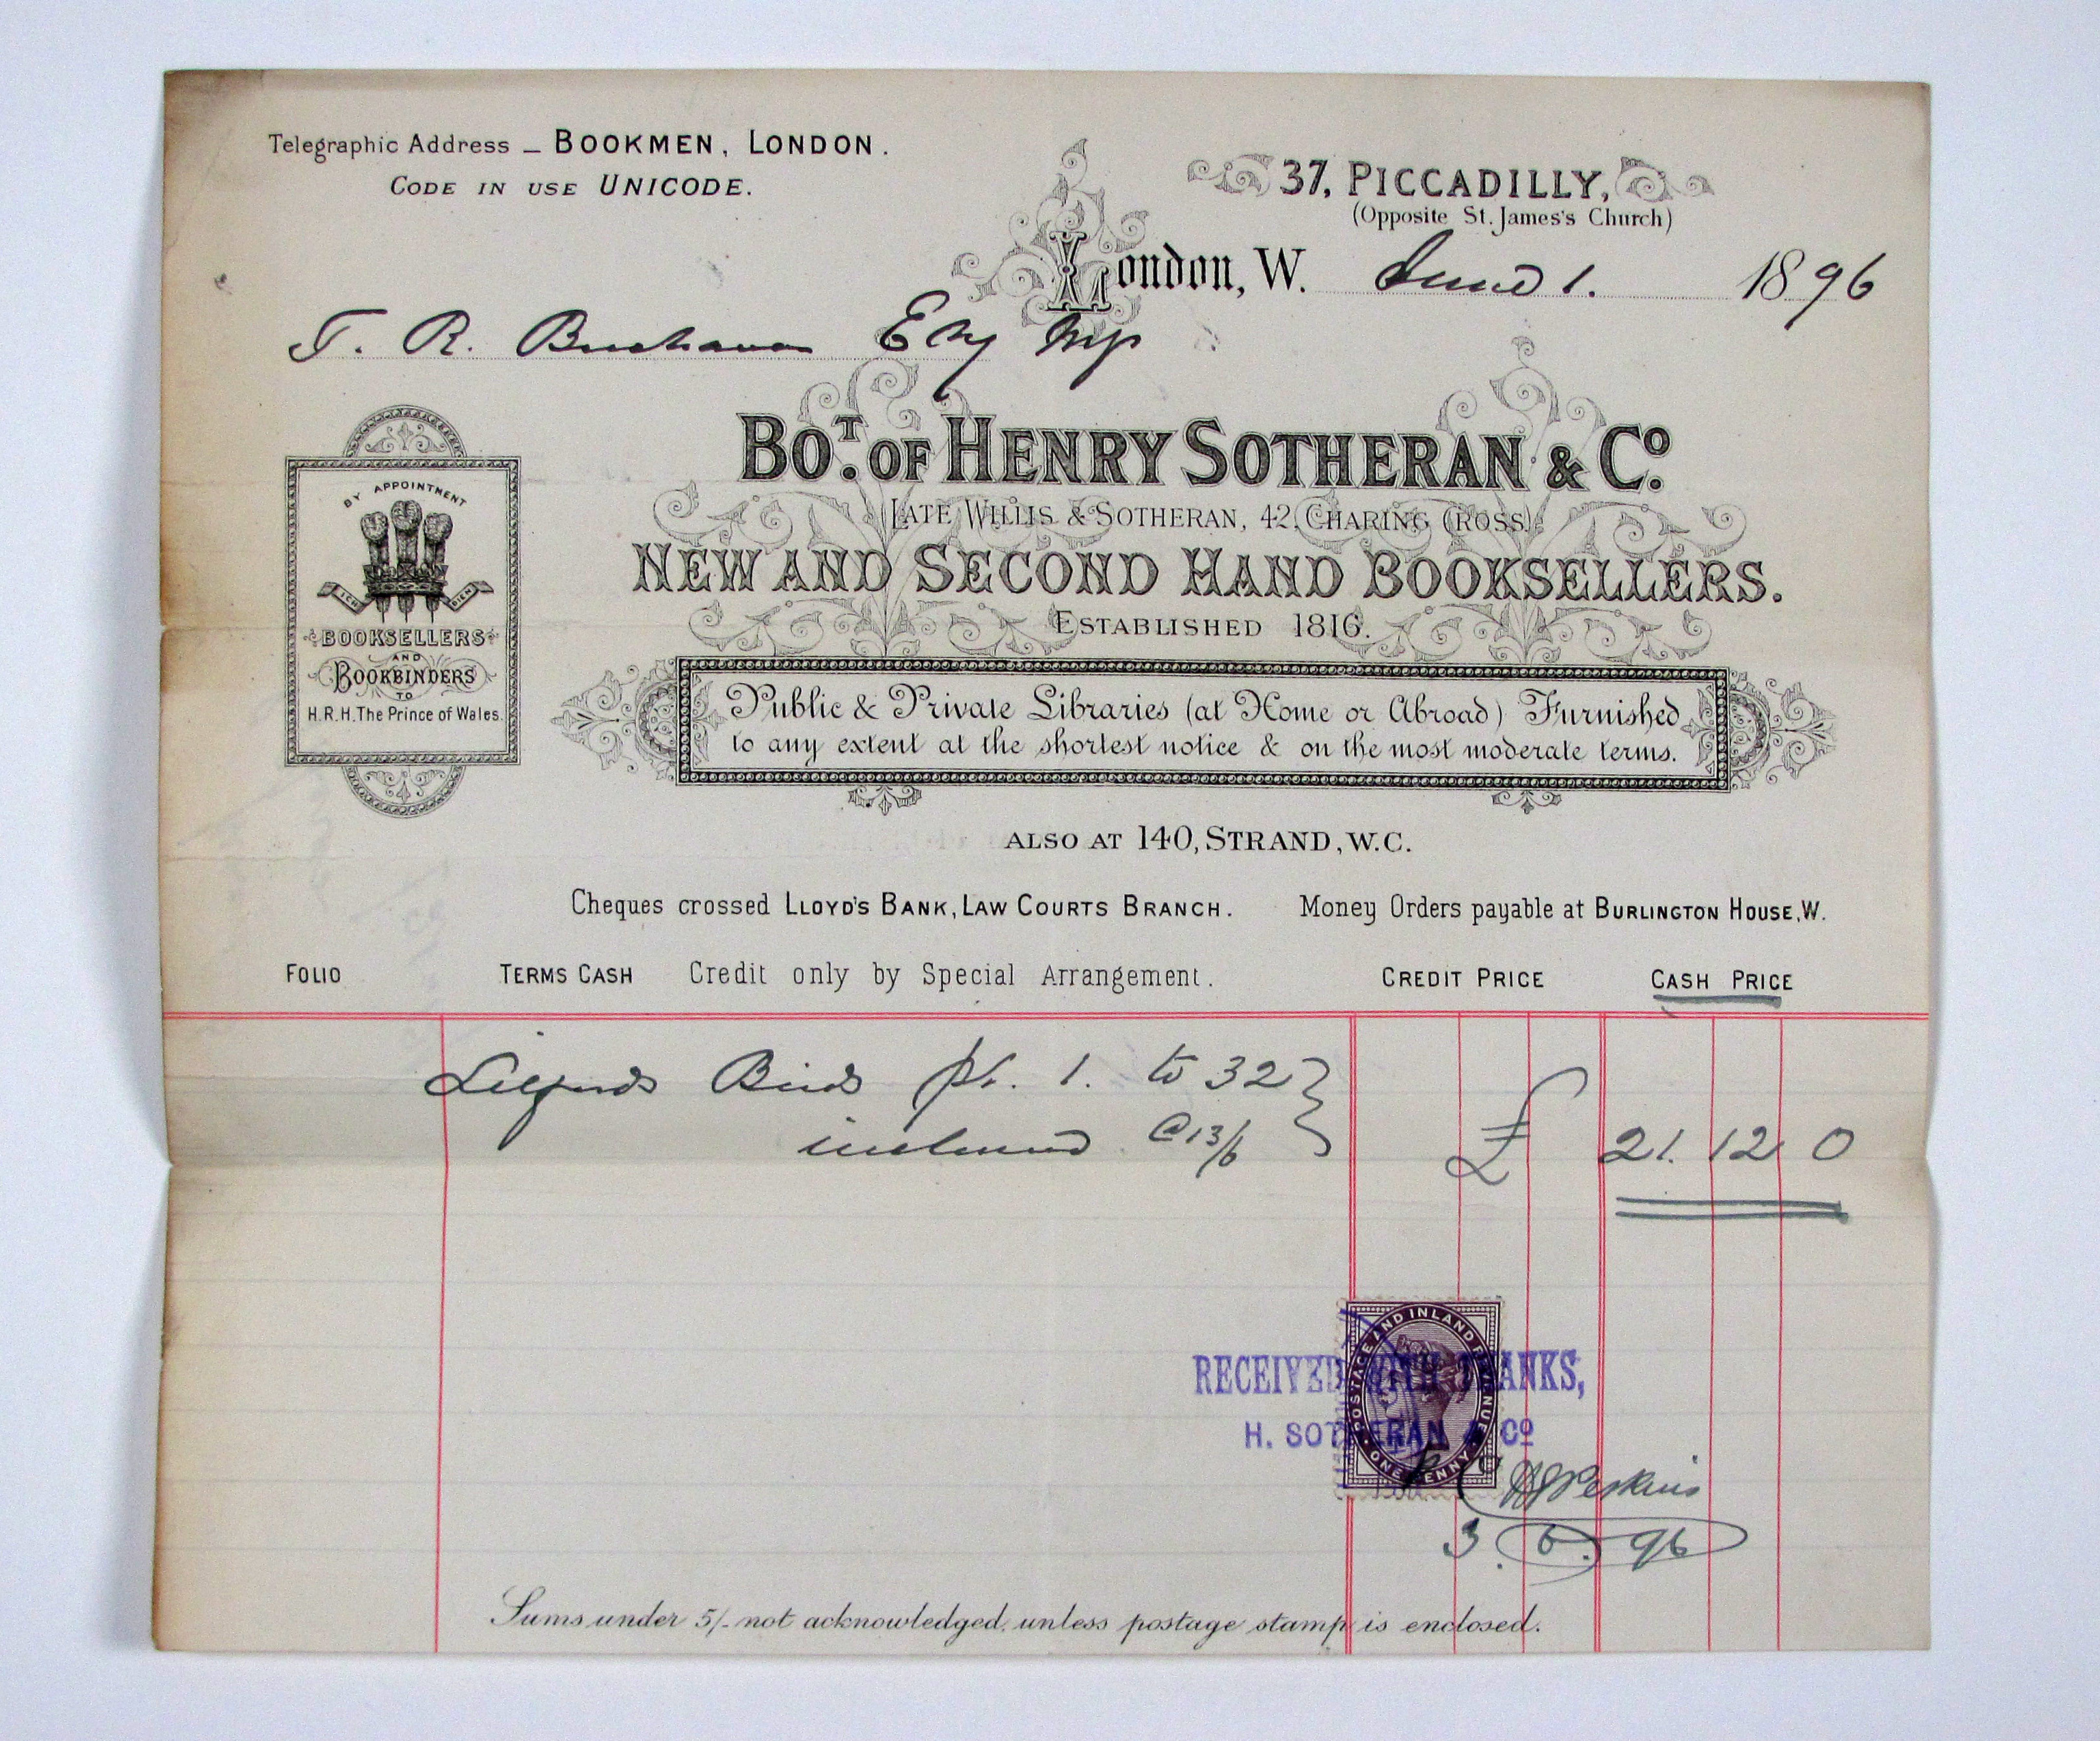 Telegraphic Address — BOOKMEN, LONDON.
CODE IN USE UNICODE.
37, PICCADILLY,
(Opposite St. James's Church)
London, W. June 1. 1896
T. R. Buchanan Esq MP
BY APPOINTMENT
ICH DIEN
BOOKSELLERS
AND
BOOKBINDERS
TO
H.R.H. The Prince of Wales.
BOT. OF HENRY SOTHERAN & CO.
(LATE WILLIS & SOTHERAN, 42, CHARING CROSS)
NEW AND SECOND HAND BOOKSELLERS.
ESTABLISHED 1816.
Public & Private Libraries (at Home or Abroad) Furnished
to any extent at the shortest notice & on the most moderate terms.
ALSO AT 140, STRAND, W.C.
Cheques crossed LLOYD'S BANK, LAW COURTS BRANCH. Money Orders payable at BURLINGTON HOUSE, W.
FOLIO TERMS CASH Credit only by Special Arrangement. CREDIT PRICE CASH PRICE
Lilfords Birds pt. 1. to 32
inclusive @ 13/6 £ 21. 12 0
POSTAGE AND INLAND REVENUE
ONE PENNY
RECEIVED WITH THANKS,
H. SOTHERAN & CO
Perkins
3. 6. 96
Sums under 5/- not acknowledged, unless postage stamp is enclosed.